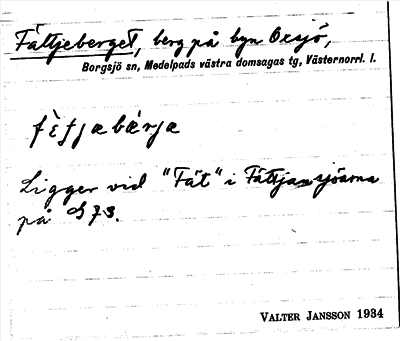 Fättjeberget, berg på byn Oxsjö,
Borgsjö sn, Medelpads västra domsagas tg, Västernorrl. l.
fètjæbærja
Ligger vid "Fät" i Fättjansjöarna
på G73.
VALTER JANSSON 1934